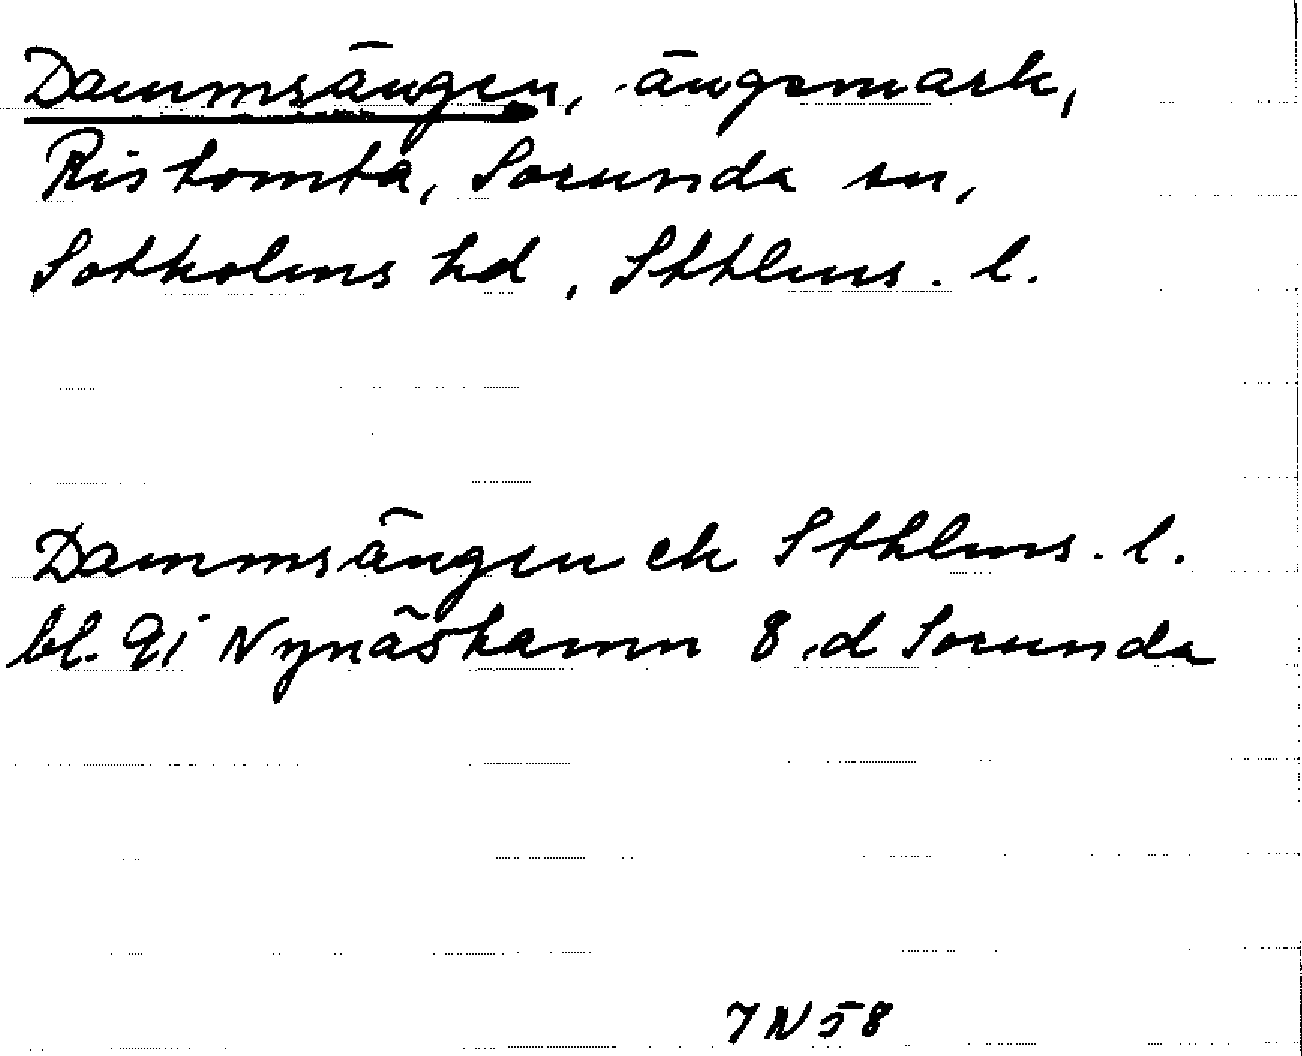 Dammsängen, ängsmark,
Ristomta, Sorunda sn,
Sotholms hd, Sthlms. l.
Dammsängen ek Sthlms. l.
bl. 9i Nynäshamn 8 d Sorunda
7 N 58